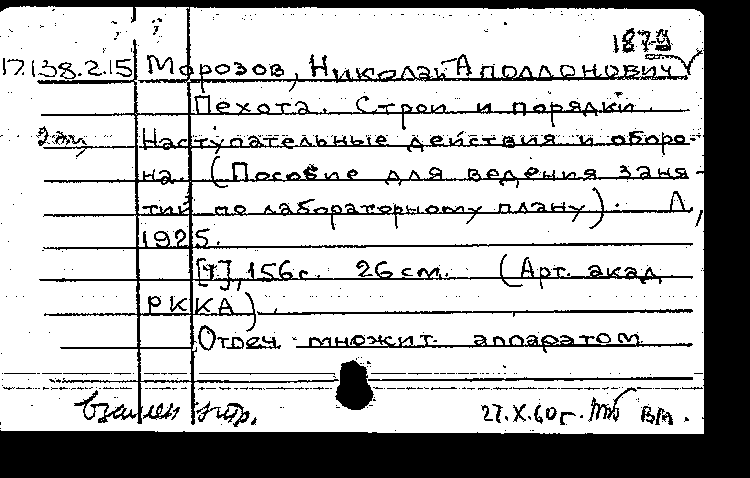 1879
17.138.2.15 Морозов, Николай Аполлонович
Пехота. Строи и порядки.
2 эк, Наступательные действия и оборо-
на. (Пособие для ведения заня-
тий по лабораторному плану). Л,
1925.
[1], 156 с. 26 см. (Арт. акад
РККА).
Отпеч множит. аппаратом
взамен утр.
27.X.60 г. ВМ.